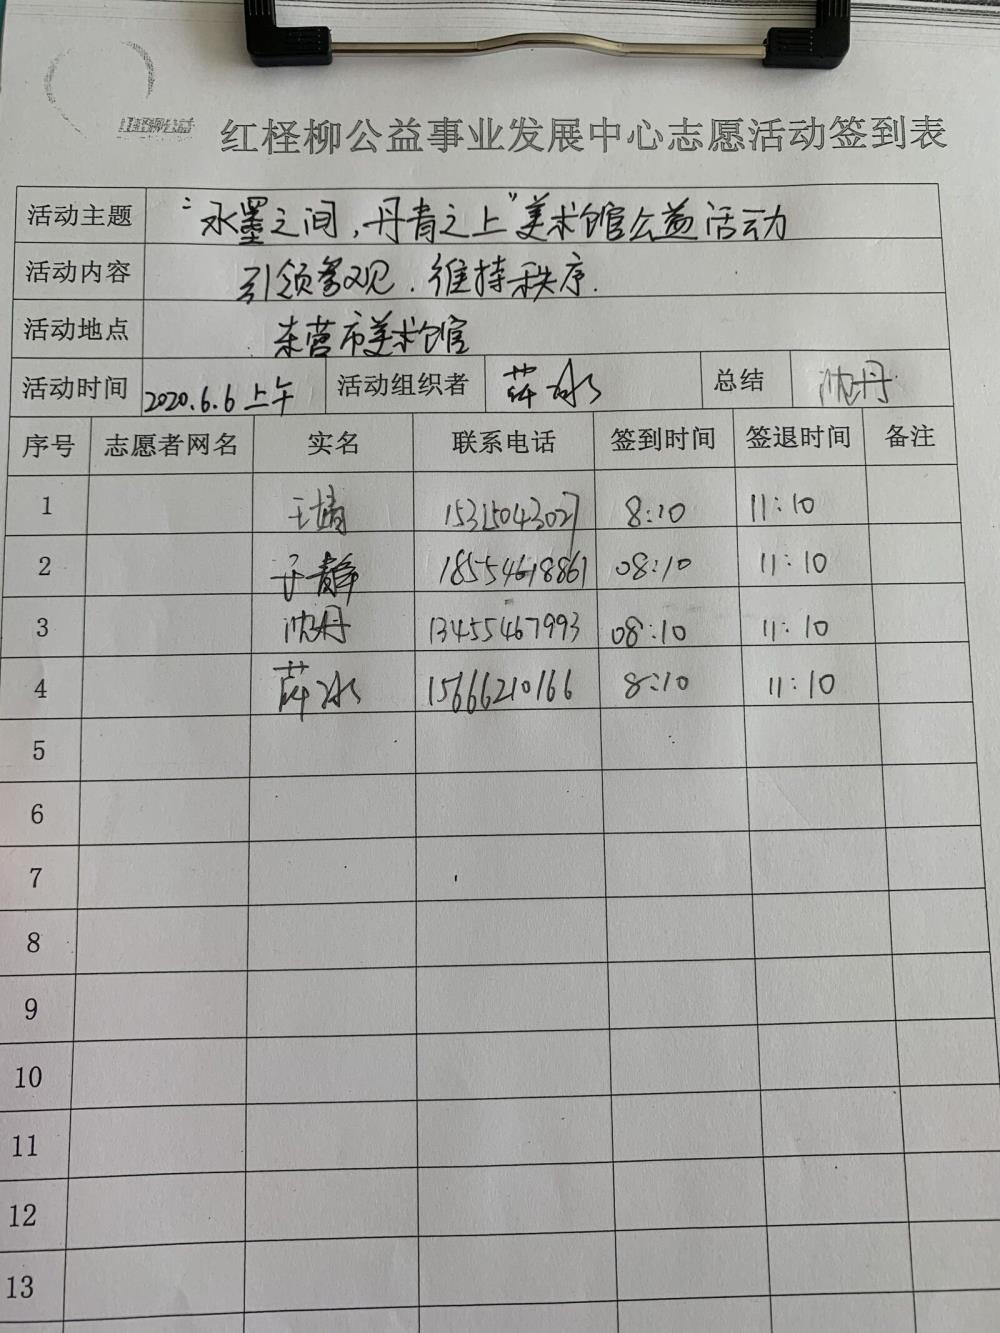 红柽柳公益事业发展中心志愿活动签到表
活动主题 “水墨之间,丹青之上”美术馆公益活动
活动内容 引领参观.维持秩序.
活动地点 东营市美术馆
活动时间 2020.6.6上午 活动组织者 薛冰 总结 沈丹
序号 志愿者网名 实名 联系电话 签到时间 签退时间 备注
1 王婧 15315043027 8:10 11:10
2 于静 18554618861 08:10 11:10
3 沈丹 13455467993 08:10 11:10
4 薛冰 15666210166 8:10 11:10
5
6
7
8
9
10
11
12
13